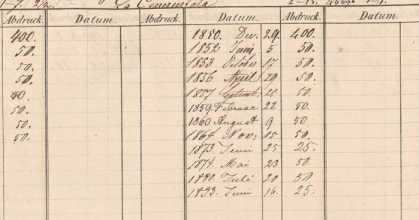 Abdruck. Datum. Abdruck. Datum. Abdruck. Datum.
400. 1850. Dec. 29. 400.
50. 1852 Juni 5 50.
50. 1853 October 17 50.
50. 1856 April 29 50.
40. 1857 Septemb. 21 50.
50. 1859 Februar 22 50.
50. 1860 August 9 50
50. 1864 Nov. 15 50.
1873 Juni 25 25.
1874. Mai 23 50.
1880. Juli 20 50.
1893. Juni 16. 25.